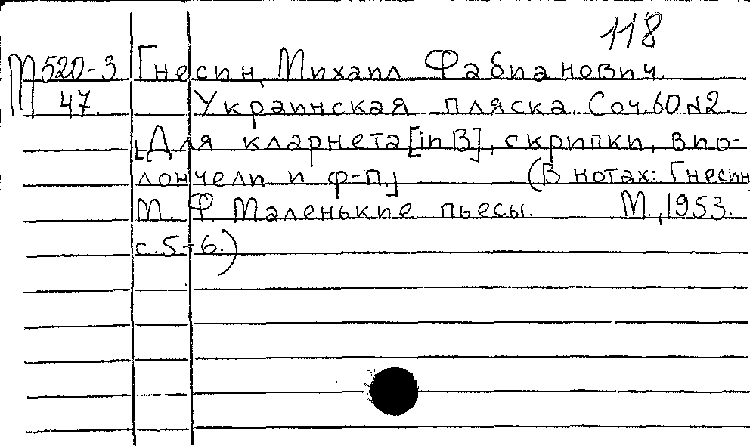 118
М520-3 Гнесин, Михаил Фабианович.
47. Украинская пляска. Соч. 60 №2.
[Для кларнета [in B], скрипки, виo-
лончели и ф-п.] (В нотах: Гнесин
М. Ф. Маленькие пьесы. М., 1953.
с. 5-6.)